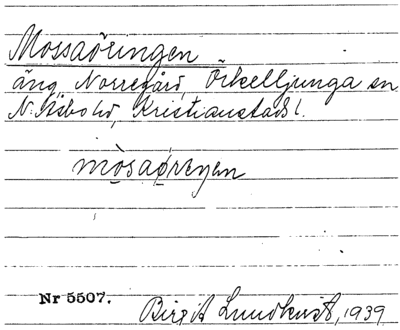 Mossaöringen
äng, Norregård, Örkelljunga sn
N. Åsbo hd, Kristianstads l.
mòsaøreŋen
Nr 5507.
Birgit Lundkvist, 1939